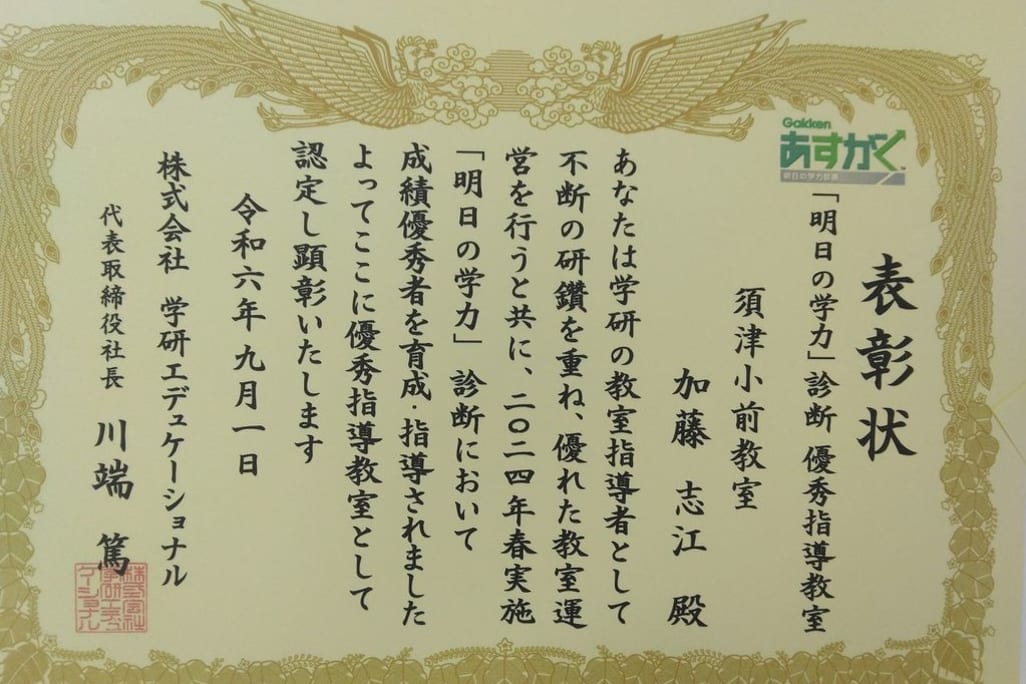 表彰状
Gakken
あすがく
明日の学力診断
「明日の学力」診断 優秀指導教室
須津小前教室
加藤 志江 殿
あなたは学研の教室指導者として
不断の研鑽を重ね、優れた教室運
営を行うと共に、二〇二四年春実施
「明日の学力」診断において
成績優秀者を育成・指導されました
よってここに優秀指導教室として
認定し顕彰いたします
令和六年九月一日
株式会社 学研エデュケーショナル
代表取締役社長 川端 篤
株式会社
学研エデュ
ケーショナル